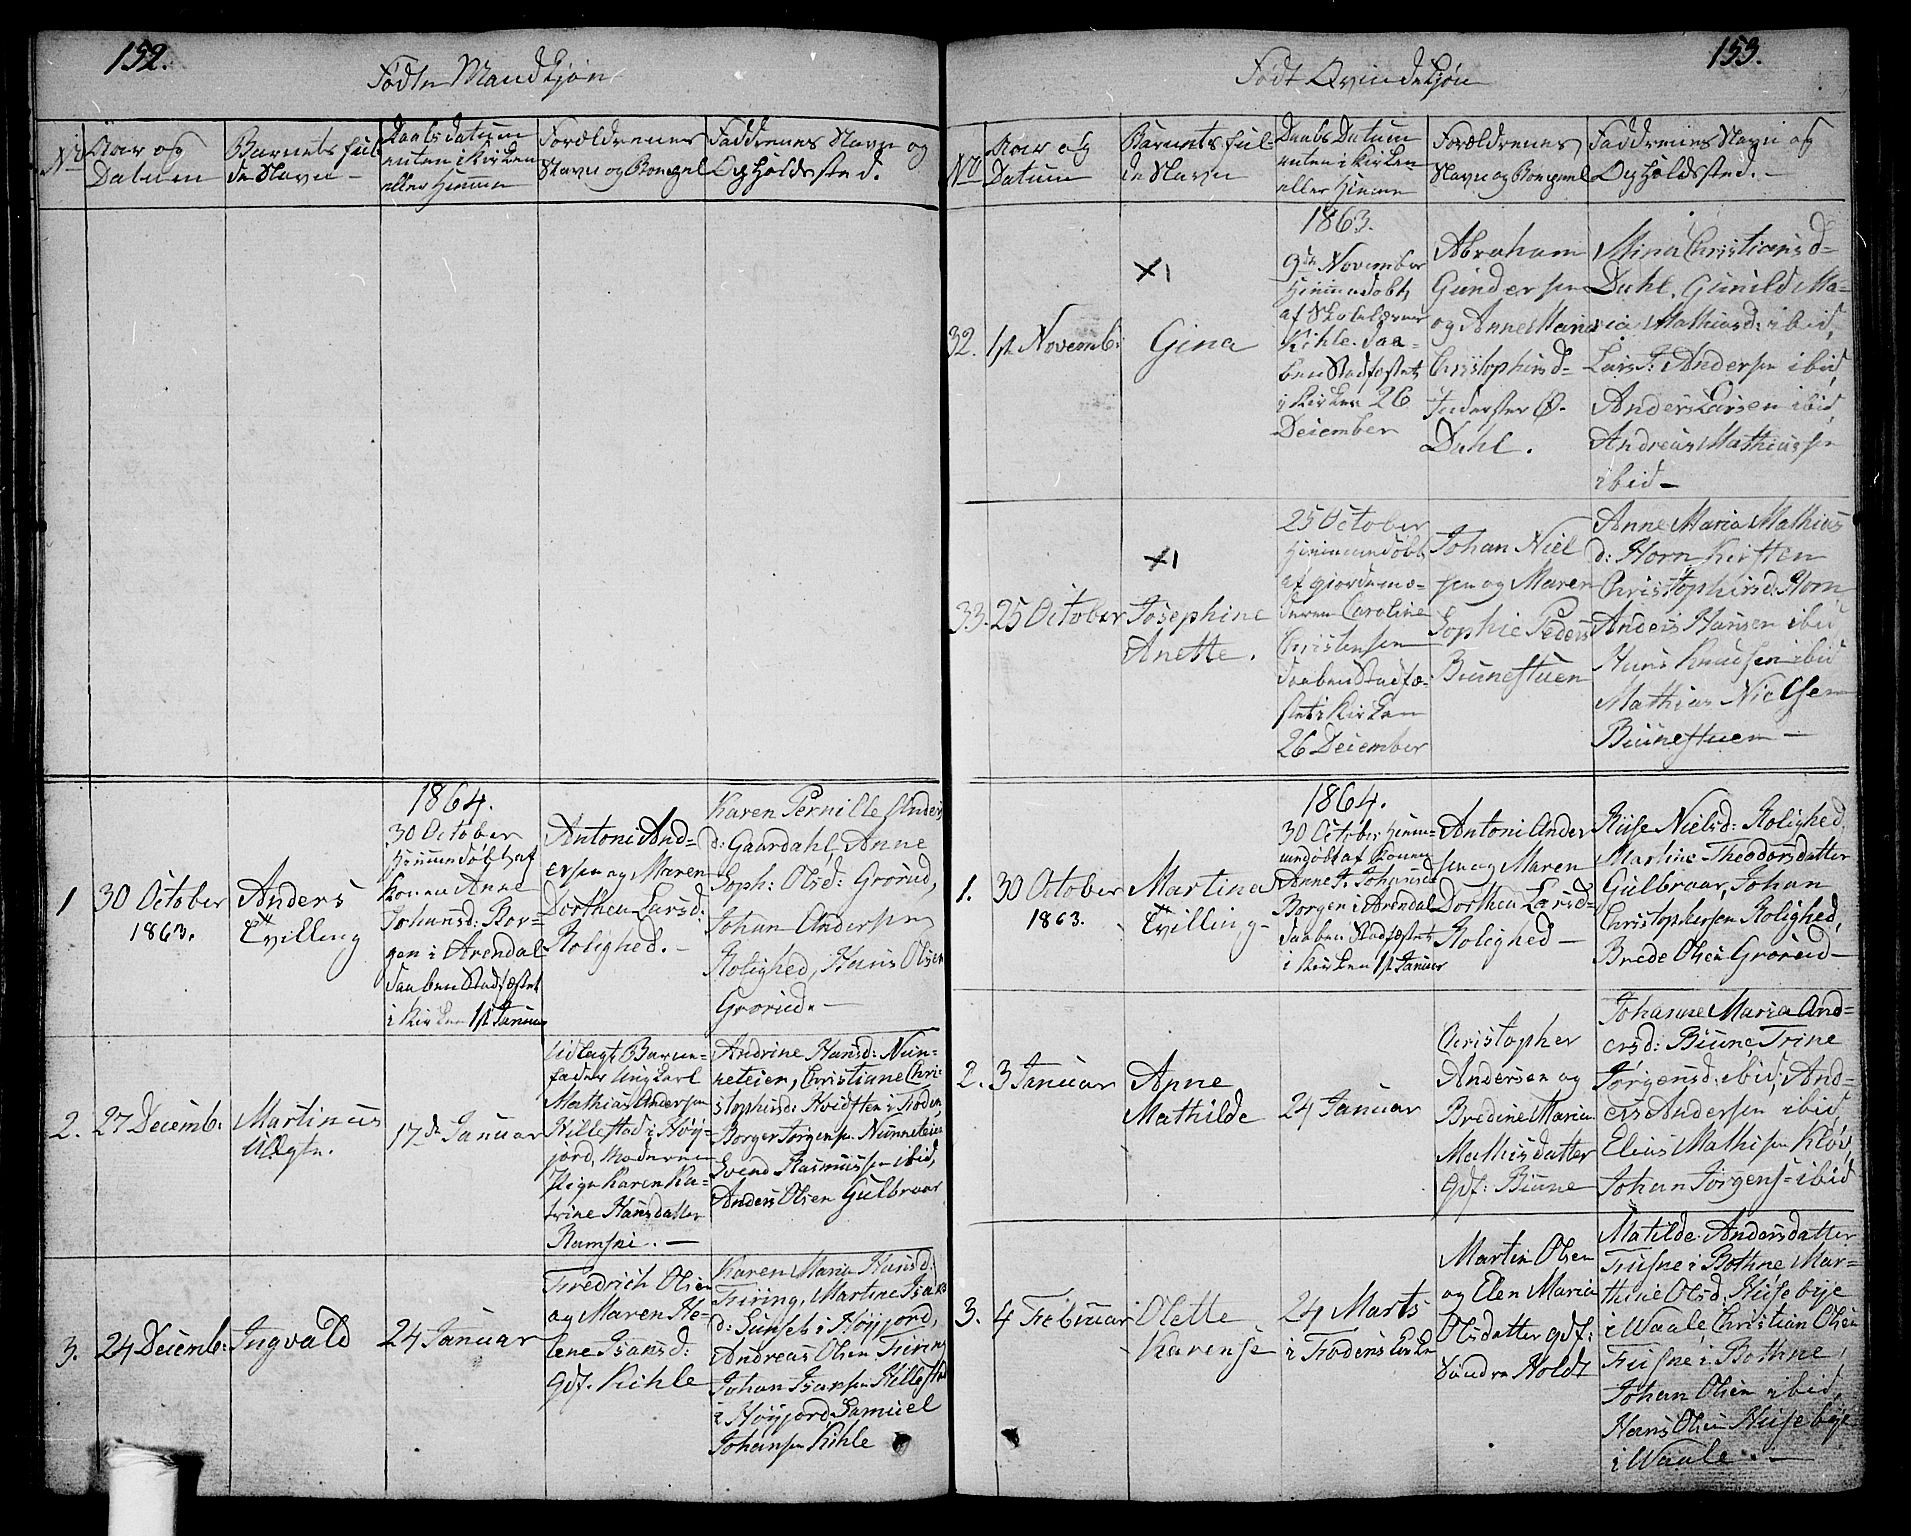 152.
Födte Mandkjön
No
Aar og
Datum
Barnets ful-
de Navn
Daabs datum
enten i Kirken
eller Hiemme
Forældrenes
Navn og Bopæl
Faddrenes Navn og
Opholdssted.
1
30 October
1863.
Anders
Tvilling
1864.
30 October
Hiemmedöbt af
Konen Anne
Johansd: Bor-
gen i Arendal
Daaben Stadfæstet
i Kirken 1ste Januar
Antoni And-
ersen og Maren
Dorthea Larsd:
Rolighed.
Karen Pernille Anders
d: Gaardahl, Anne
Soph: Olsd: Grorud,
Johan Andersen
Rolighed, Hans Olsen
Grorud.
2.
27 Decemb:
Martinus
Uægte.
17de Januar
Udlagt Barne-
fader Ungkarl
Mathias Andersen
Hillestad i Höy-
jord, Moderen
Pige Karen Ka-
trine Hansdatter
Ramsni.
Andrine Hansd: Nun-
neteien, Christiane Chri-
stophersd: Hvidsten i Froden
Borger Jörgensen Nunneteien
Svend Rasmussen ibid,
Anders Olsen Gulbraar
3.
24 Decemb:
Ingvald
24 Januar
Fredrich Olsen
og Maren He-
lene Isansd:
Gdf. Kihle
Karen Maria Hansd:
Firing, Martine Isaks
d: Sunset i Höyjord,
Andreas Olsen Firing
Johan Isaksen Hillestad
i Höyjord, Samuel
Johansen Kihle
153.
Födt Qvindekjön
No
Aar og
Datum
Barnets ful-
de Navn
Daabs Datum
enten i Kirken
eller Hiemme
Forældrenes
Navn og Bopæl
Faddrenes Navn og
Opholdssted.
32.
1ste Novemb:
X1
Gina
1863.
9de November
Hiemmedöbt
af Skolelærer
Kihle. Daa-
ben Stadfæstet
i Kirken 26
December
Abraham
Gundersen
og Anne Maria
Christophersd-
Inderster Ø.
Dahl.
Mina Christiansd-
Dahl, Gunild Ma-
ria Mathiasd: ibid,
Lars J: Andersen ibid,
Anders Larsen ibid,
Andreas Mathiassen
ibid
33.
25 October
X1
Josephine
Anette.
25 October
Hiemmedöbt
af Giordemo-
deren Caroline
Christensen
Daaben Stadfæ-
stet i Kirken
26 December
Johan Niel
sen og Maren
Sophie Peders
Biunestuen
Anne Maria Mathias
d: Horn Kirsten
Christophersd: Horn
Anders Hansen ibid
Hans Knudsen ibid
Mathias Nielsen
Biunestuen
1.
30 October
1863.
Martina
Tvilling
1864.
30 October Hiem-
medöbt af Konen
Anne J. Johansd
Borgen i Arendal
Daaben Stadfæstet
i Kirken 1ste Januar
Antoni Ander
sen og Maren
Dorthea Larsd-
Rolighed
Kuse Nielsd: Rolighed,
Martine Theodorsdatter
Gulbraar, Johan
Christophersen Rolighed,
Brede Olsen Grorud
2.
3 Januar
Anne
Mathilde
24 Januar
Christopher
Andersen og
Bredine Maria
Mathisdatter
Gdf: Biune
Johanne Maria And-
ersd: Biune, Trine
Jörgensd: ibid, And-
ers Andersen ibid
Elias Mathisen Klöv,
Johan Jörgens= ibid
3.
4 Februar
Olette
Karense
24 Marts
i Frodens Kirke
Martin Olsen
og Elen Maria
Olsdatter gdf:
Söndre Holdt
Matilde Andersdatter
Fusne i Bothne Mar-
thine Olsd. Husebye
i Waale, Christian Olsen
Fusne i Bothne,
Johan Olsen ibid,
Hans Olsen Husebye
i Waale.